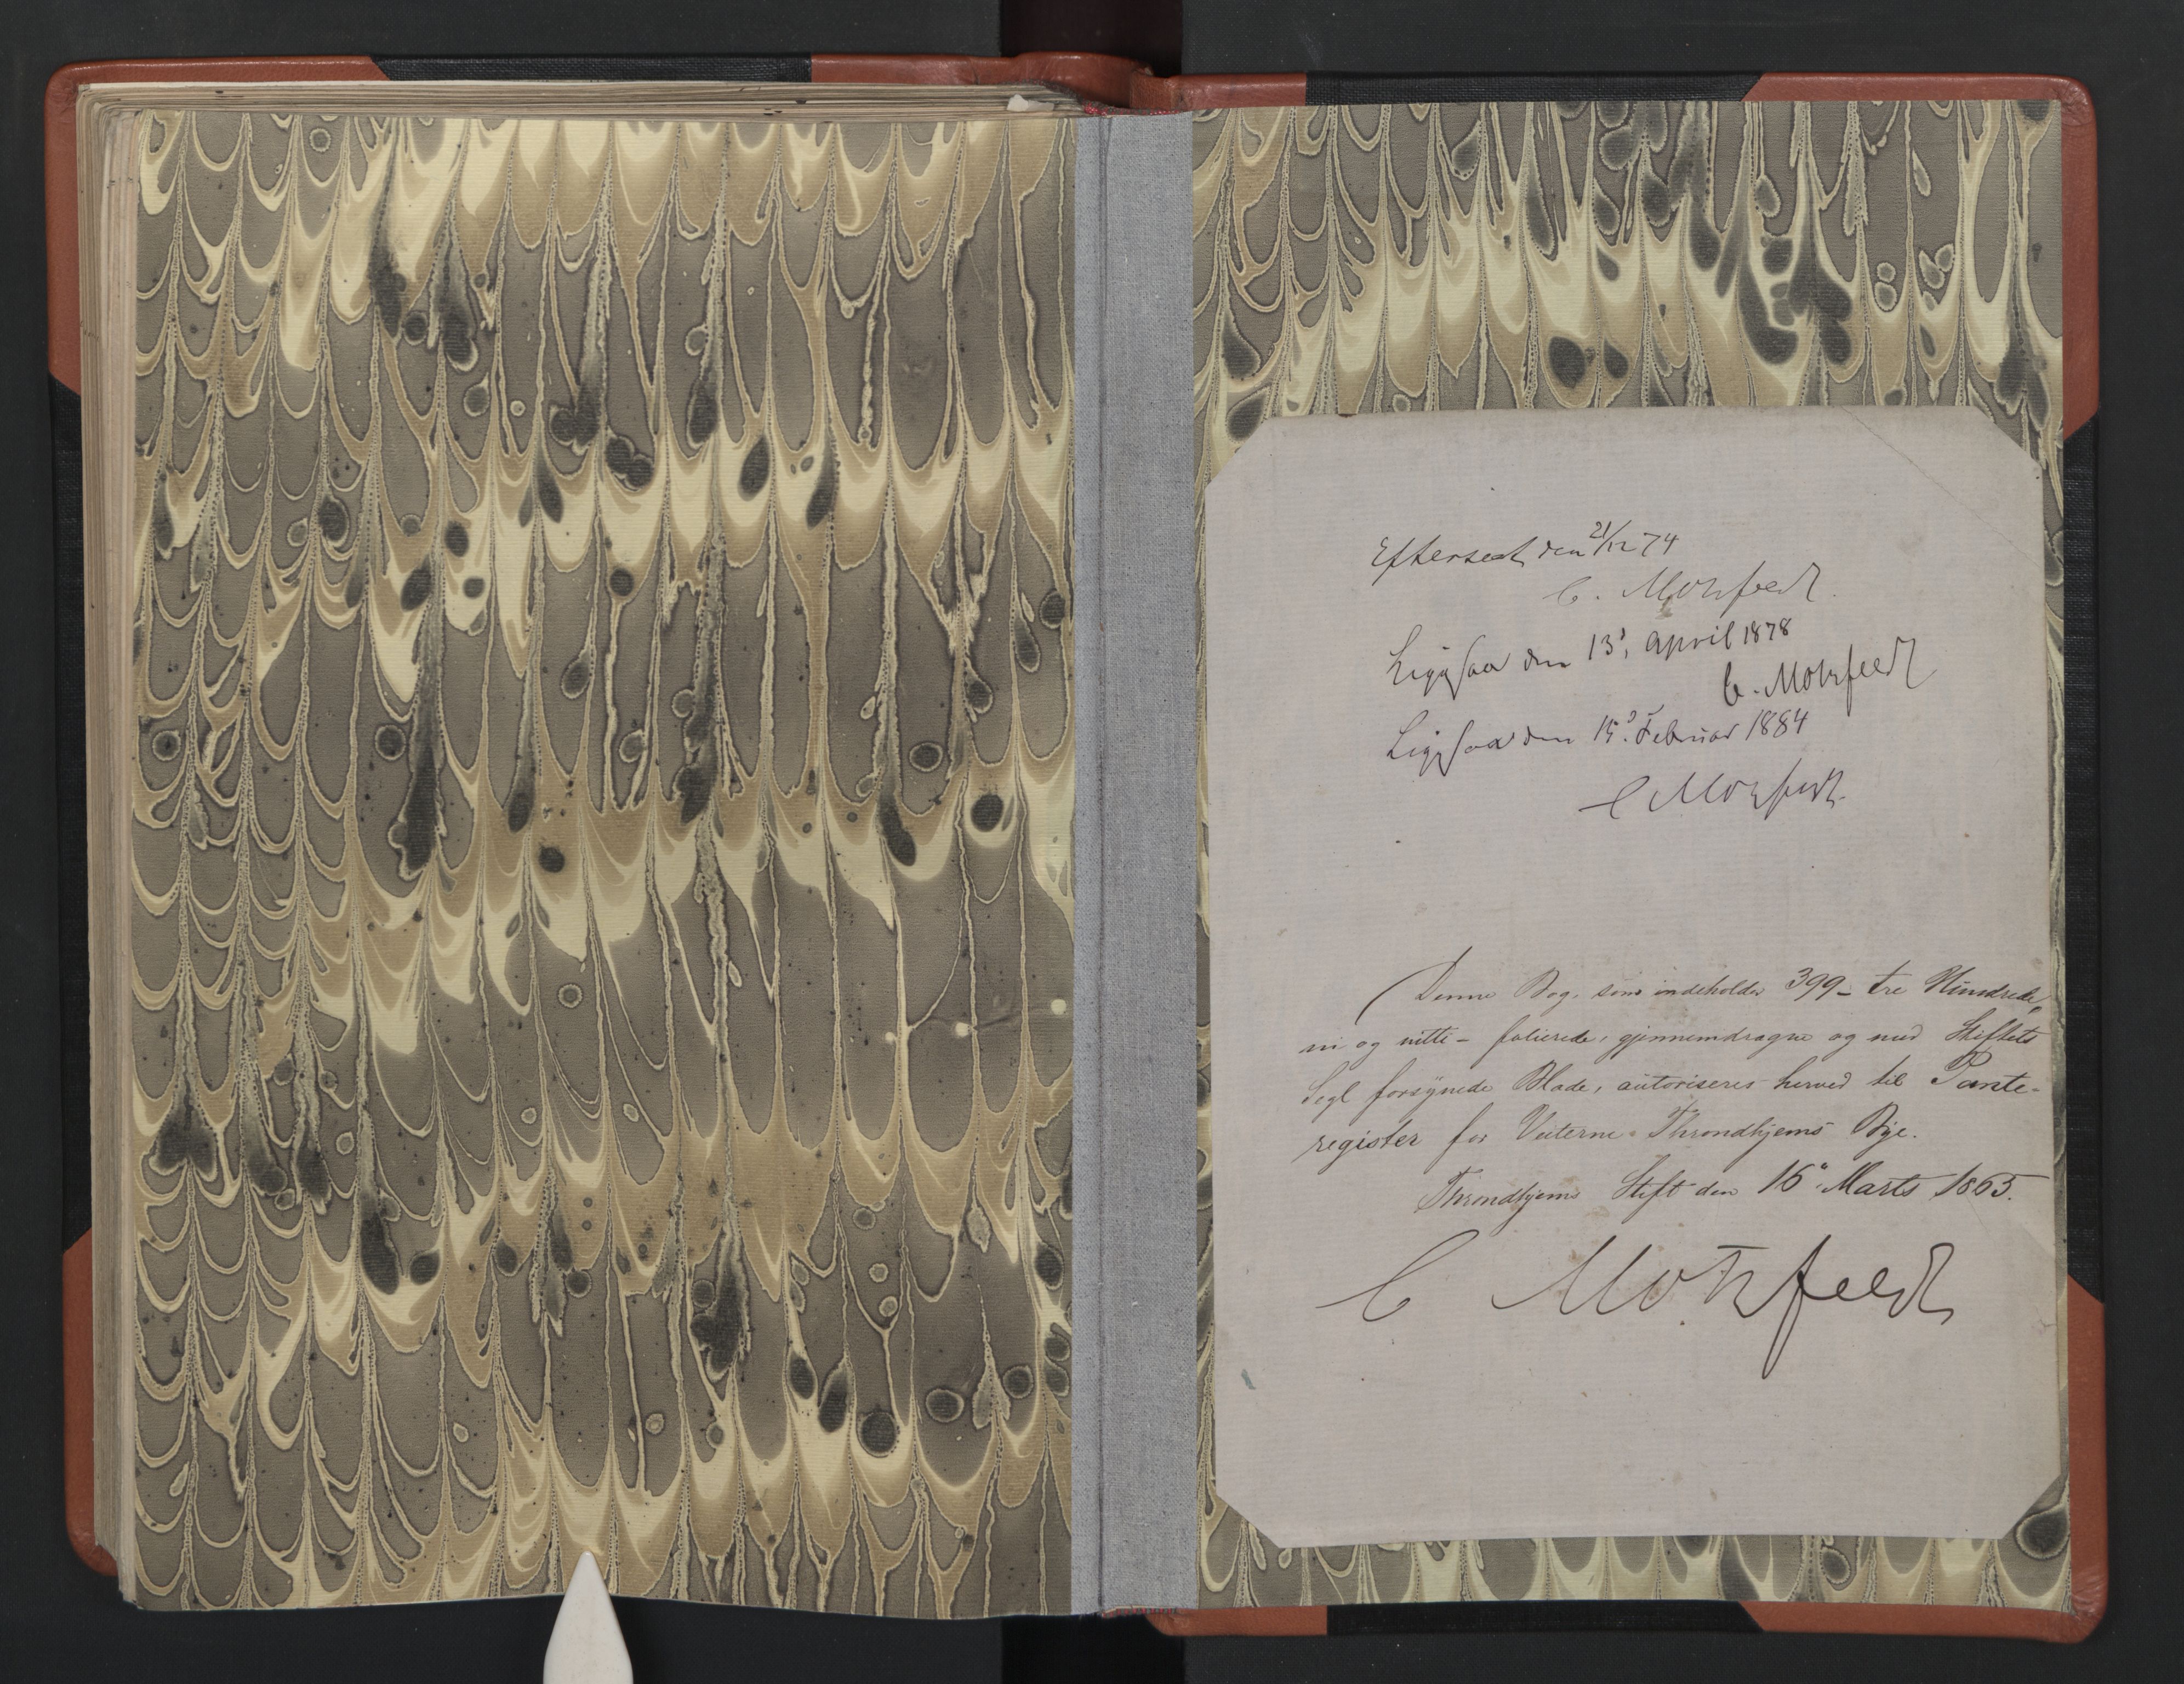 Efterseet den 21/12 74
C. Motzfeldt
Ligesaa den 13de April 1878
C. Motzfeldt
Ligesaa den 15de Februar 1884
C Motzfeldt
Denne Bog, som indeholder 399 - tre Hundrede
ni og nitti - folierede, gjennemdragne og med Stiftets
Segl forsynede Blade, autoriseres herved til Pante-
register for Veiterne Throndhjems Bye.
Throndhjems Stift den 16de Marts 1865.
C Motzfeldt